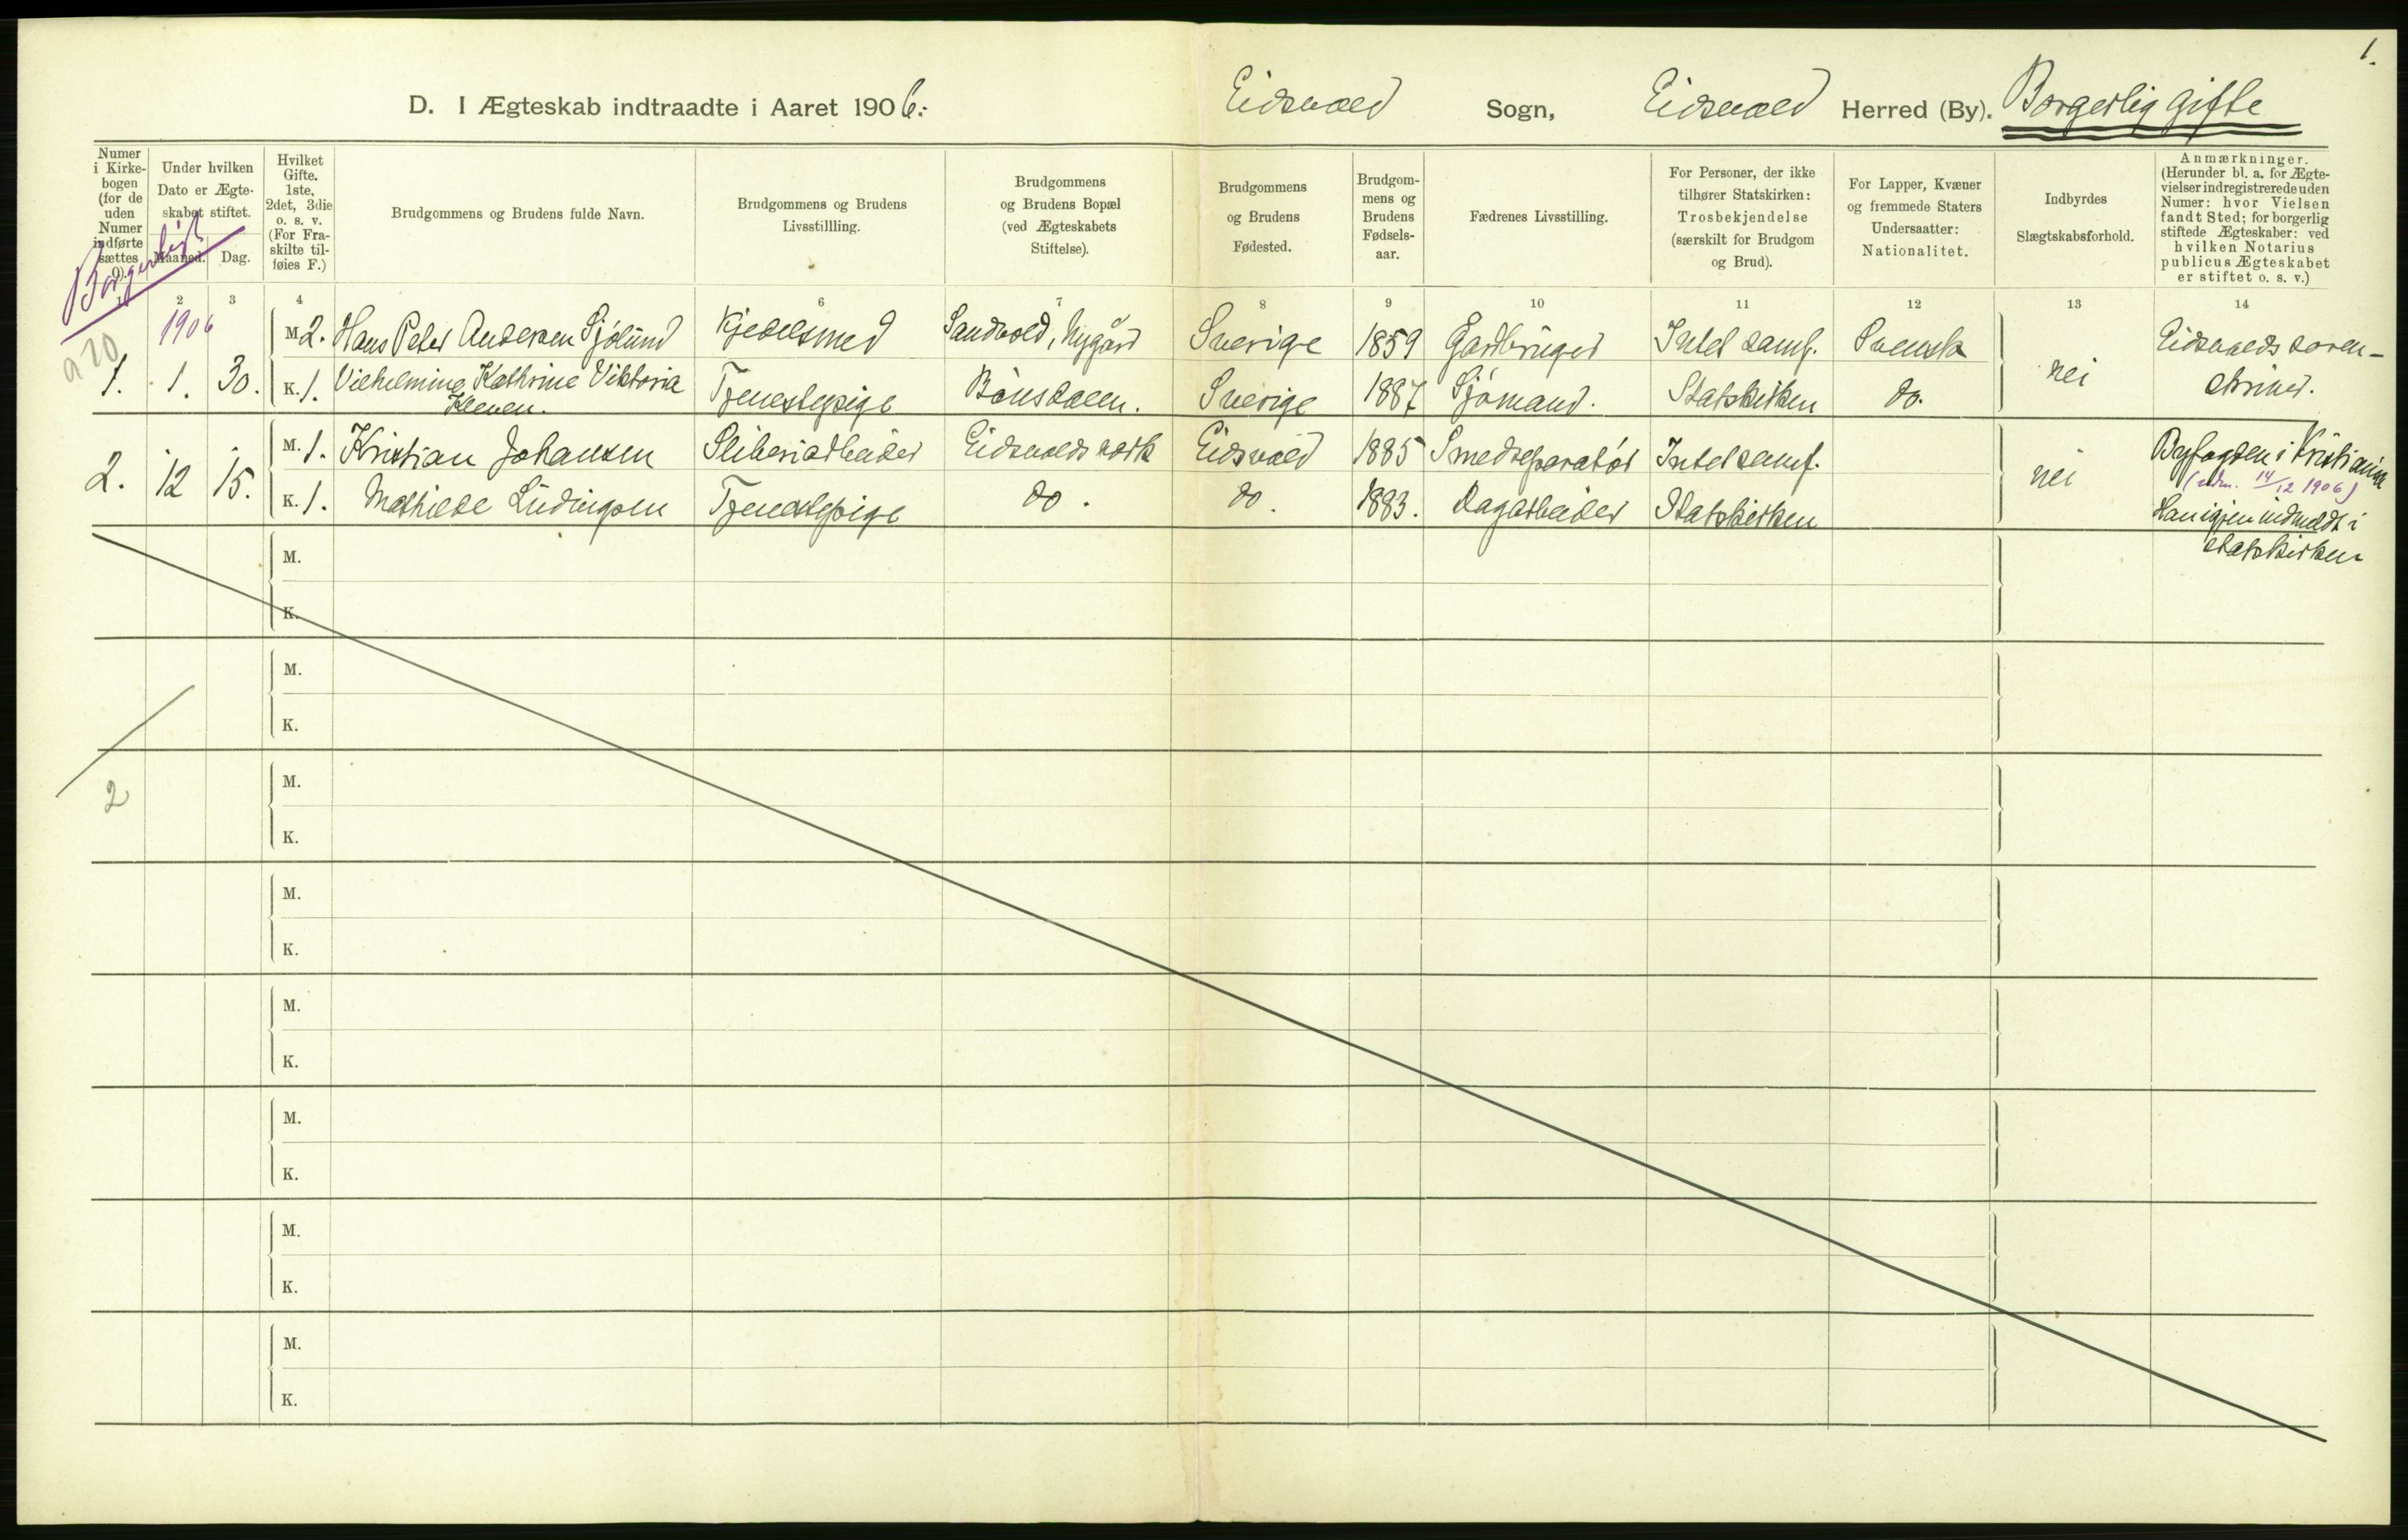 1.
D. I Ægteskab indtraadte i Aaret 1906.- Eidsvold Sogn, Eidsvold Herred (By). Borgerlig gifte
Numer i Kirke-bogen (for de uden Numer indførte sættes 0).
Under hvilken Dato er Ægte-skabet stiftet.
Maaned. Dag.
Hvilket Gifte. 1ste, 2det, 3die o. s. v. (For Fra-skilte til-føies F.)
Brudgommens og Brudens fulde Navn.
Brudgommens og Brudens Livsstillling.
Brudgommens og Brudens Bopæl (ved Ægteskabets Stiftelse).
Brudgommens og Brudens Fødested.
Brudgom-mens og Brudens Fødsels-aar.
Fædrenes Livsstilling.
For Personer, der ikke tilhører Statskirken: Trosbekjendelse (særskilt for Brudgom og Brud).
For Lapper, Kvæner og fremmede Staters Undersaatter: Nationalitet.
Indbyrdes Slægtskabsforhold.
Anmærkninger. (Herunder bl. a. for Ægte-vielser indregistrerede uden Numer: hvor Vielsen fandt Sted; for borgerlig stiftede Ægteskaber: ved hvilken Notarius publicus Ægteskabet er stiftet o. s. v.)
Borgerligt
1 2 3 4 6 7 8 9 10 11 12 13 14
1906
M. 2. Hans Peter Andersen Sjölund Kjedelsmed Sandvold, Nygård Sverige 1859 Gardbruger Intet samf. Svensk Eidsvolds soren-
1. 1. 30. K. 1. Vilhelmine Kathrine Viktoria Tjenestepige Bönsdalen. Sverige 1887 Sjömand. Statskirken do. nei skriver.
Kleven.
M. 1. Kristian Johansen Sliberiarbeider Eidsvolds værk Eidsvold 1885 Smedreparatör Intet samf. Byfogden i Kristiania
2. 12 15. nei ( 14/12 1906)
K. 1. Mathilde Ludvigsen Tjenestepige do. do. 1883. Dagarbeider Statskirken Han igjen indmeldt i
statskirken
M.
K.
M.
K.
2
M.
K.
M.
K.
M.
K.
M.
K.
M.
K.
M.
K.